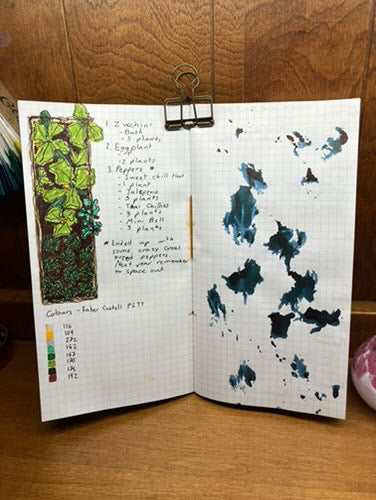 1. Zucchini
- Bush
- 3 plants
2. Eggplant
- 2 plants
3. Peppers *
- Sweet chill Heat
- 1 plant
- Jalepeno
- 3 plants
- Thai Chillies
- 3 plants
- Mini Bell
3 plants
* Ended up with
some crazy cross
breed peppers.
Next year remember
to space out
Colours - Faber Castell PITT
116
109
272
162
167
170
175
192